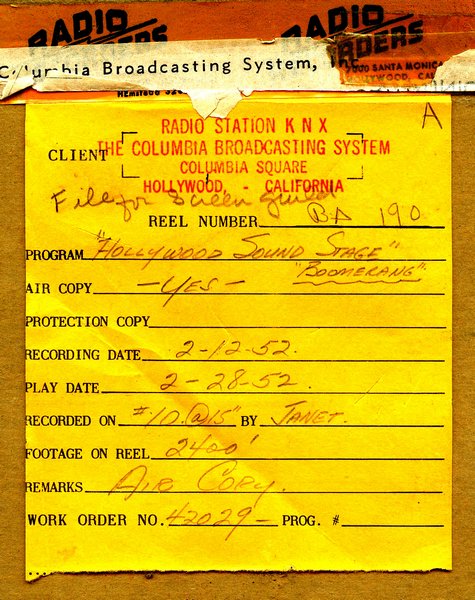 RADIO RADIO
RDERS RDERS
Columbia Broadcasting System, 
7000 SANTA MONICA
HOLLYWOOD, CAL
HEmstead
A
RADIO STATION KNX
CLIENT THE COLUMBIA BROADCASTING SYSTEM
COLUMBIA SQUARE
HOLLYWOOD, - CALIFORNIA
File for Screen Guild
REEL NUMBER BA 190
PROGRAM "HOLLYWOOD SOUND STAGE"
"BOOMERANG"
AIR COPY - YES -
PROTECTION COPY
RECORDING DATE 2-12-52.
PLAY DATE 2-28-52.
RECORDED ON #10 @ 15" BY JANET.
FOOTAGE ON REEL 2400'
REMARKS AIR COPY.
WORK ORDER NO. 42029- PROG. #